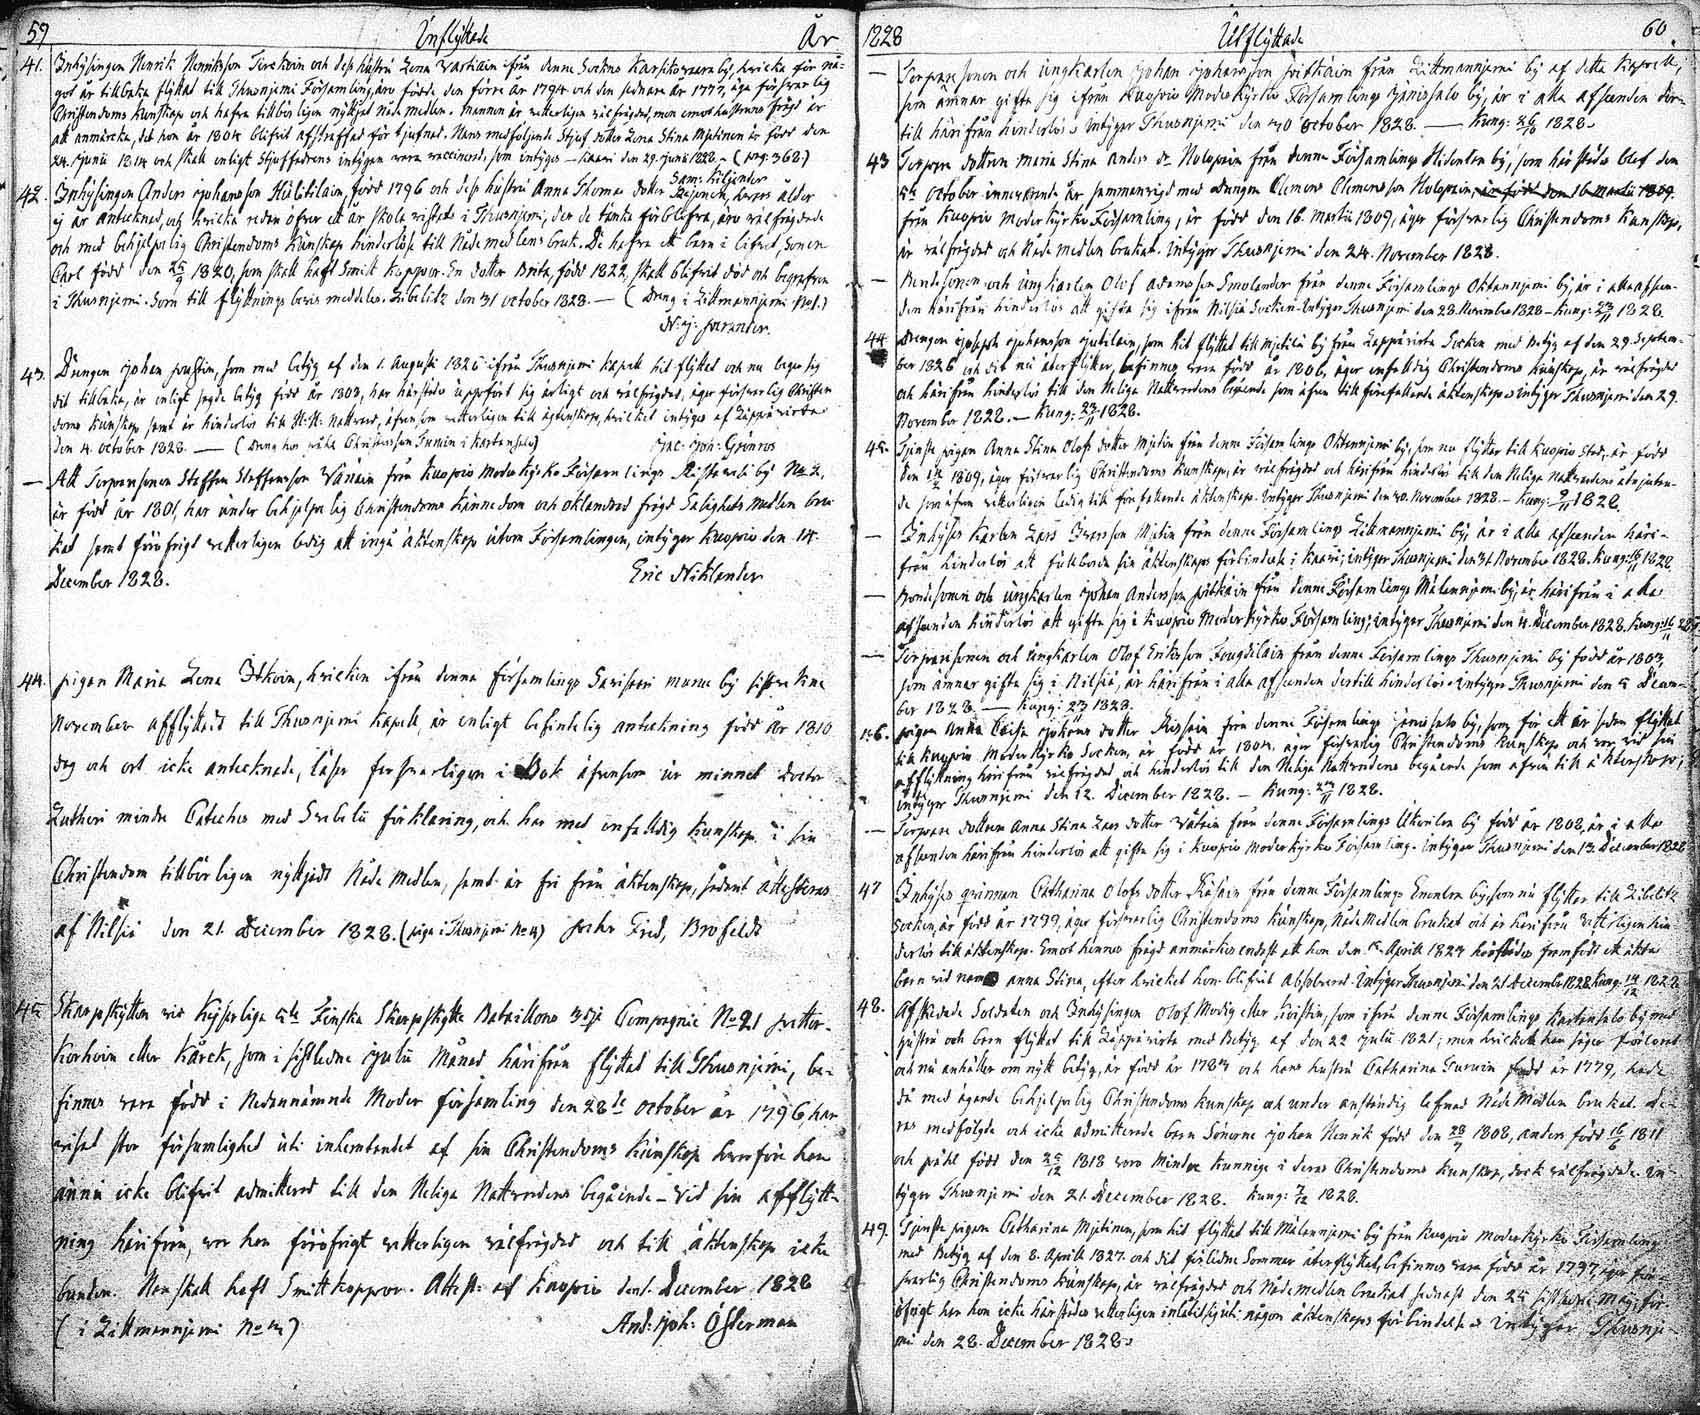 59 Inflyttade År
41. Inhysingen Henrik Henriksson Tirckoin och dess hustru Lena Vartiain ifrån denne Sockns Karsikovaara by, hvicka för nå-
got år tillbaka flyttat till Thusnjemi Församling, äro födde den förre år 1794 och den sednare år 1777, äga försvarlig
Christendoms kunskap och hafva tillbörligen nyttjat Nådemedlen. Mannen är vetterligen välfrägdad, men emot hustruns frägd är
att anmärka, det hon år 1804 blifvit afstraffad för tjufnad. Hans medföljande Stjuf dotter Lena Stina Mjetinen är född den
24. Junii 1814 och skall enligt Stjuffadrens intygan vara vaccinerad, som intygas – Kaavi den 29. Junii 1828. – (pag: 368.)
Sam: Kiljander
42. Inhysingen Anders Johansson Huttilain, född 1796 och dess hustru Anna Thomas dotter, hvars ålder
ej är antecknad, och hvicka redan öfver ett år skola vistats i Thusnjemi, der de tänka förblifva, äro välfrägdade
och med behjelpelig Christendoms kunskap hinderlöse till Nådemedlens bruk. De hafva ett barn i lifvet, sonen
Carl född den 25/9 1820, som skall haft Smitt koppor. En dotter Brita, född 1822, skall blifvit död och begrafven
i Thusnjemi. Som till flyttnings bevis meddelas. Libelitz den 31 October 1828. — (Dreng i Littmannjemi No 1.)
N: ej: Perander.
43. Drängen Johan Joustin, som med betyg af den 1. Augusti 1826 ifrån Thusnjemi Kapell hit flyttat och nu beger sig
dit tillbaka, är enligt sagde betyg född år 1803, har härstädes uppfört sig ärligt och välfrägdad, äger försvarlig Christen
doms kunskap samt är hinderlös till H: H: Nattvard, äfvensom vetterligen till äktenskap, hvilket intygas af Läppävirta
den 4. October 1828. — (Dreng hos Påhl Christersson Turuin i Kartensalo) Jac: Joh: Grönros
— Att Torparesonen Steffen Steffensson Vänain från Kuopio Moderkyrko Församlings Ristavesi by No 2,
är född år 1801, har under behjelpelig Christendoms kännedom och oklandrad frägd Salighets medlen bru
kat samt föröfrigt vetterligen ledig att ingå äktenskap utom Församlingen, intygar Kuopio den 14.
December 1828. Eric Niklander
44. Pigan Maria Lena Itkoin, hvicken ifrån denna församlings Savisaari by sistvekne
November afflyttadt till Thusnjemi Kapell, är enligt befintelig anteckning född år 1810
dag och ort icke antecknade, läser försvarligen i Bok äfvensom ur minnet Doctor
Lutheri mindre Cateches med Svebelii förklaring, och har med enfalldig kunskap i sin
Christendom tillbörligen nyttjadt Nåde medlen, samt är fri från äktenskap, sådant attesteras
af Nilsiä den 21. December 1828. (piga i Thusnjemi No 4) Joh: Fred, Brofeldt
45. Skarpskytten vid Kejserliga 5te Finska Skarpskytte Bataillons 3dje Compagnie No 21 Petter
Korhoin eller Kärck, som i sistledne Julii Månad härifrån flyttat till Thusnjemi, be-
finnes vara född i Nedannämnde Moder församling den 28de October år 1796, har
visat stor försumlighet uti inhemtandet af sin Christendoms Kunskap hvarföre han
ännu icke blifvit admitterad till den Heliga Nattvardens begående – Vid sin afflytt-
ning härifrån, var han föröfrigt vetterligen välfrägdad och till Äktenskap icke
bunden. Han skall haft Smittkoppor. Attest: af Kuopio den 1. December 1828
(i Littmannjemi No 4) And: Joh: Österman
1828 Utflyttade 60.
— Torparesonen och ungkarlen Johan Johansson från Littmannjemi by af detta Kapell,
som ämnar gifta sig ifrån Kuopio Moderkyrko Församlings Jänissalo by, är i alla afseenden der-
till härifrån hinderlös. Intygar Thusnjemi den 10 October 1828. — Kung: 26/10 1828.
43 Torpare dottren Maria Stina Anders dr Holopain från denne Församlings Hidenlen by, som härstädes blef den
5te October innevarande år sammanvigd med drängen Clemens Clemensson Holopain, är född den 16 Martii 1809.
från Kuopio Moderkyrko Församling, är född den 16. Martii 1809, äger försvarlig Christendoms Kunskap,
är välfrägdad och Nåde medlen brukat. Intygar Thusnjemi den 24. November 1828.
— Bondesonen och ungkarlen Olof Adamsson Smolander från denne Församlings Oktannjemi by, är i alla afseen-
den härifrån hinderlös att gifta sig ifrån Nilsiä Socken. Intygar Thusnjemi den 28. November 1828 – Kung: 23/11 1828.
44 Drengen Joseph Johansson Jutilain, som hit flyttat till Mjetilä by från Läppävirta Socken med Betyg af den 29. Septem-
ber 1826 och dit nu återflyttar, befinnes vara född år 1806, äger enfalldig Christendoms kunskap, är välfrägdad
och härifrån hinderlös till den Heliga Nattvardens begående som äfven till förefallande äktenskap. Intygar Thusnjemi den 29.
November 1828. — Kung: 23/11 1828.
45. Tjenste pigan Anna Stina Olofs dotter Mjetin från denne Församlings Oktannjemi by, som nu flyttar till Kuopio Stad, är född
den 1809, äger försvarlig Christendoms kunskap, är välfrägdad och härifrån hinderlös till den Heliga nattvardens åtnjutan-
de som äfven vetterligen ledig till förefallande äktenskap. Intygar Thusnjemi den 30. November 1828. – Kung: 9/11 1828.
— Inhyses Karlen Lars Iversson Mjetin från denne Församlings Littmannjemi by, är i alla afseenden häri-
från hinderlös att fullborda sin äktenskaps förbindelse i Kaavi; intygar Thusnjemi den 31 November 1828. Kung: 16/11 1828.
— Bondesonen och ungkarlen Johan Andersson Pitkäin från denne Församlings Mälennjemi by, är härifrån i alla
afseenden hinderlös att gifta sig i Kuopio Moderkyrko Församling; intygar Thusnjemi den 4. December 1828. Kung: 16/11 28.
— Torparesonen och ungkarlen Olof Eriksson Fougdilain från denne Församlings Thusnjemi by född år 1803,
som ämnar gifta sig i Nilsiä, är härifrån i alla afseenden dertill hinderlös. Intygar Thusnjemi den 5 Decem-
ber 1828. — Kung: 23/11 1828.
46. Pigan Anna Caisa Johans dotter Rissain från denne Församlings Jänissalo by, som för ett år sedan flyttat
till Kuopio Moderkyrko Socken, är född år 1804, äger försvarlig Christendoms kunskap och var vid sin
afflyttning härifrån välfrägdad och hinderlös till den Heliga Nattvardens begående som äfven till äktenskap;
intygar Thusnjemi den 12. December 1828. — Kung: 23/11 1828.
— Torpare dottren Anna Stina Lars dotter Vätäin från denne Församlings Ukonlen by född år 1808, är i alla
afseenden härifrån hinderlös att gifta sig i Kuopio Moderkyrko Församling. Intygar Thusnjemi den 13. December 1828
47 Inhyses qvinnan Catharina Olofs dotter Räsäin från denne Församlings Enonlen by, som nu flyttar till Libelitz
Socken, är född år 1799, äger försvarlig Christendoms Kunskap, Nåde medlen brukat och är härifrån vetterligen hin
derlös till äktenskap. Emot hennes frägd anmärkes endast att hon den 15. Aprill 1824 härstädes framfödt ett oäkta
barn vid namn Anna Stina, efter hvicket hon blifvit Absolverad. Intygar Thusnjemi den 21 December 1828. Kung: 14/12 1828
48. Afskedade Soldaten och Inhysingen Olof Modig eller Koistin, som ifrån denne Församlings Kartensalo by med
hustru och barn flyttat till Läppävirta med Betyg af den 22 Julii 1821; men hvicket han säger förlorat
och nu anhåller om nytt betyg, är född år 1784 och hans hustru Catharina Turuin född år 1779, hade
då med ägande behjelpelig Christendoms kunskap och under anständig lefnad Nåde Medlen brukat. De-
ras medföljde och icke admitterade barn Sönerne Johan Henrik född den 28/7 1808, Anders född 16/6 1811
och Påhl född den 25/12 1818 voro mindre kunnige i deras Christendoms kunskap, dock välfrägdade. In-
tygar Thusnjemi den 21. December 1828. Kung: 7/12 1828.
49. Tjenste pigan Catharina Mjetinen, som hit flyttat till Mälannjemi by från Kuopio Moderkyrko Församling
med Betyg af den 8. Aprill 1827. och dit förledne Sommar återflyttat, befinnes vara född år 1797, äger för-
svarlig Christendoms kunskap, är välfrägdad och Nådemedlen brukat sednast den 25 sistledne Maj; för
öfrigt har hon icke härstädes vetterligen inlåtit sig uti någon äktenskaps förbindelse. Intygar Thusnje-
mi den 28. December 1828.